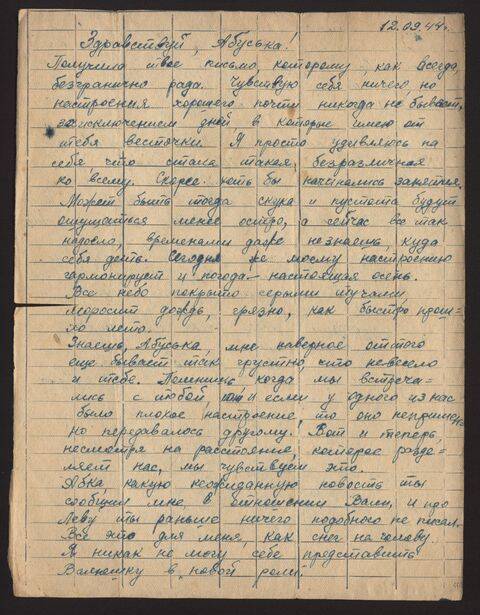 12.09.44г.
Здравствуй, Абуська!
Получила твое письмо, которому как всегда,
безгранично рада. Чувствую себя ничего, но
настроения хорошего почти никогда не бывает,
за исключением дней, в которые имею от
тебя весточки. Я просто удивляюсь на
себя что стала такая, безразличная
ко всему. Скорее хоть бы начинались занятия.
Может быть тогда скука и пустота будут
ощущаться менее остро, а сейчас все так
надоело, временами даже не знаешь, куда
себя деть. Сегодня же моему настроению
гармонирует и погода - настоящая осень.
Все небо покрыто серыми тучами,
моросит дождь, грязно, как быстро прош=
ло лето.
Знаешь, Абуська, мне наверное оттого
еще бывает так грустно, что невесело
и тебе. Помнишь, когда мы встреча=
лись с тобой, и если у одного из нас
было плохое настроение, то оно непремен=
но передавалось другому! Вот и теперь,
несмотря на расстояние, которое разде=
ляет нас, мы чувствуем это.
Абка, какую неожиданную новость ты
сообщил мне, в отношении Вали, и про
Леву ты раньше ничего подобного не писал.
Все это для меня, как снег на голову.
Я никак не могу себе представить
Валюшку в новой роли.